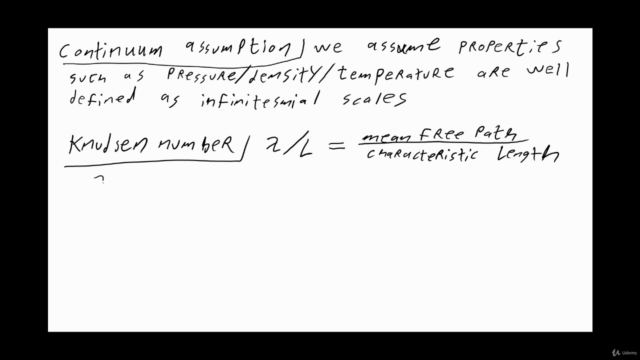 Continuum assumption, we assume properties
such as pressure/density/temperature are well
defined as infinitesmial scales
Knudsen number, λ/L = mean free path
characteristic length
ûdemy